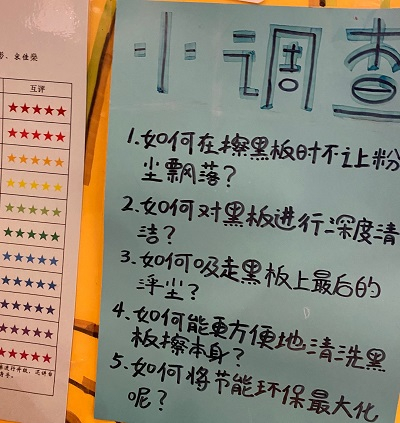 小调查
1.如何在擦黑板时不让粉
尘飘落?
2.如何对黑板进行深度清
洁?
3.如何吸走黑板上最后的
浮尘?
4.如何能更方便地清洗黑
板擦本身?
5.如何将节能环保最大化
呢?
互评
★★★★★
★★★★★
★★★★★
★★★★★
★★★★★
★★★★★
★★★★★
★★★★★
★★★★★
★★★★★
★★★★★